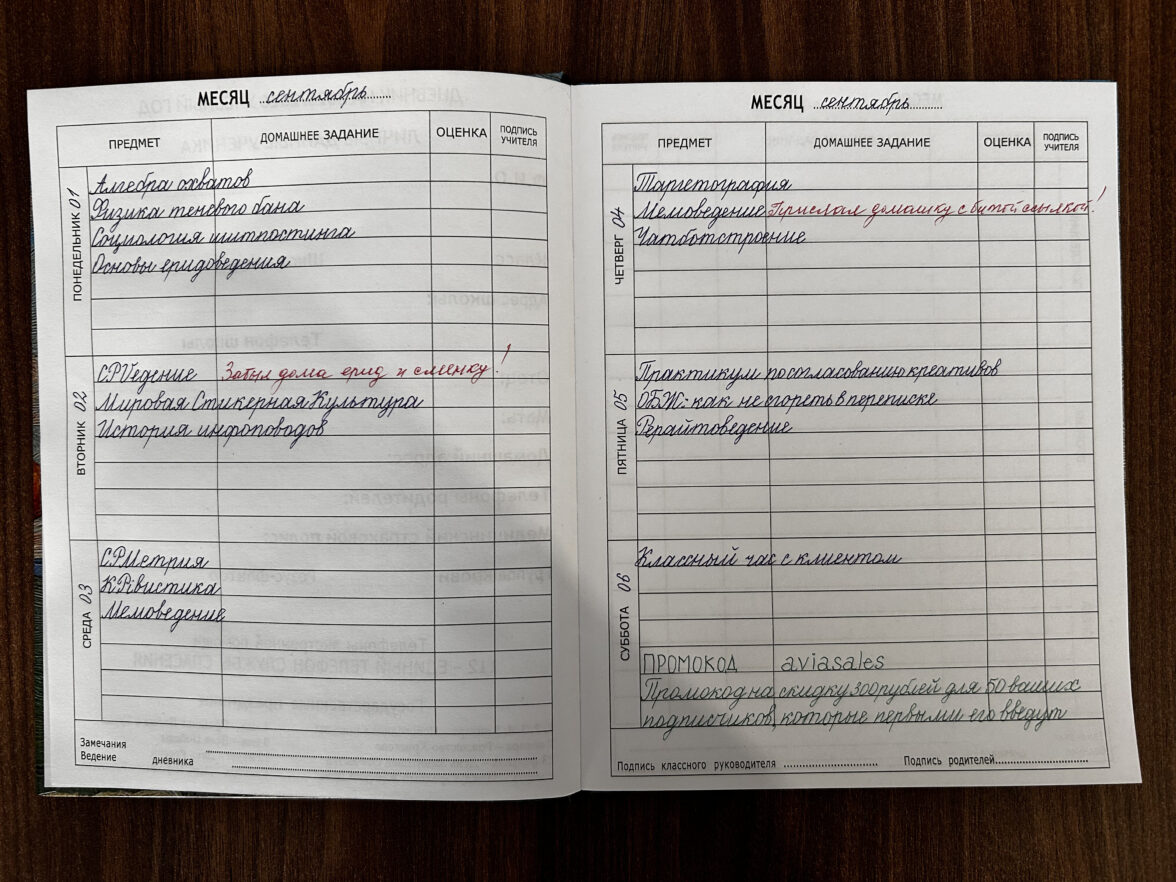 МЕСЯЦ сентябрь
ПРЕДМЕТ ДОМАШНЕЕ ЗАДАНИЕ ОЦЕНКА ПОДПИСЬ УЧИТЕЛЯ
ПОНЕДЕЛЬНИК 01
Алгебра охватов
Физика теневого бана
Социология шитпостинга
Основы еридоведения
ВТОРНИК 02
СРVедение Забыл дома ерид и сменку!
Мировая Стикерная Культура
История инфоповодов
СРЕДА 03
СРМетрия
КPIвистика
Мемоведение
Замечания
Ведение дневника
МЕСЯЦ сентябрь
ПРЕДМЕТ ДОМАШНЕЕ ЗАДАНИЕ ОЦЕНКА ПОДПИСЬ УЧИТЕЛЯ
ЧЕТВЕРГ 04
Таргетография
Мемоведение Прислал домашку с битой ссылкой!
Чатботстроение
ПЯТНИЦА 05
Практикум по согласованию креативов
ОБЖ: как не сгореть в переписке
Рерайтоведение
СУББОТА 06
Классный час с клиентом
ПРОМОКОД aviasales
Промокод на скидку 300 рублей для 50 ваших
подписчиков, которые первыми его введут
Подпись классного руководителя Подпись родителей